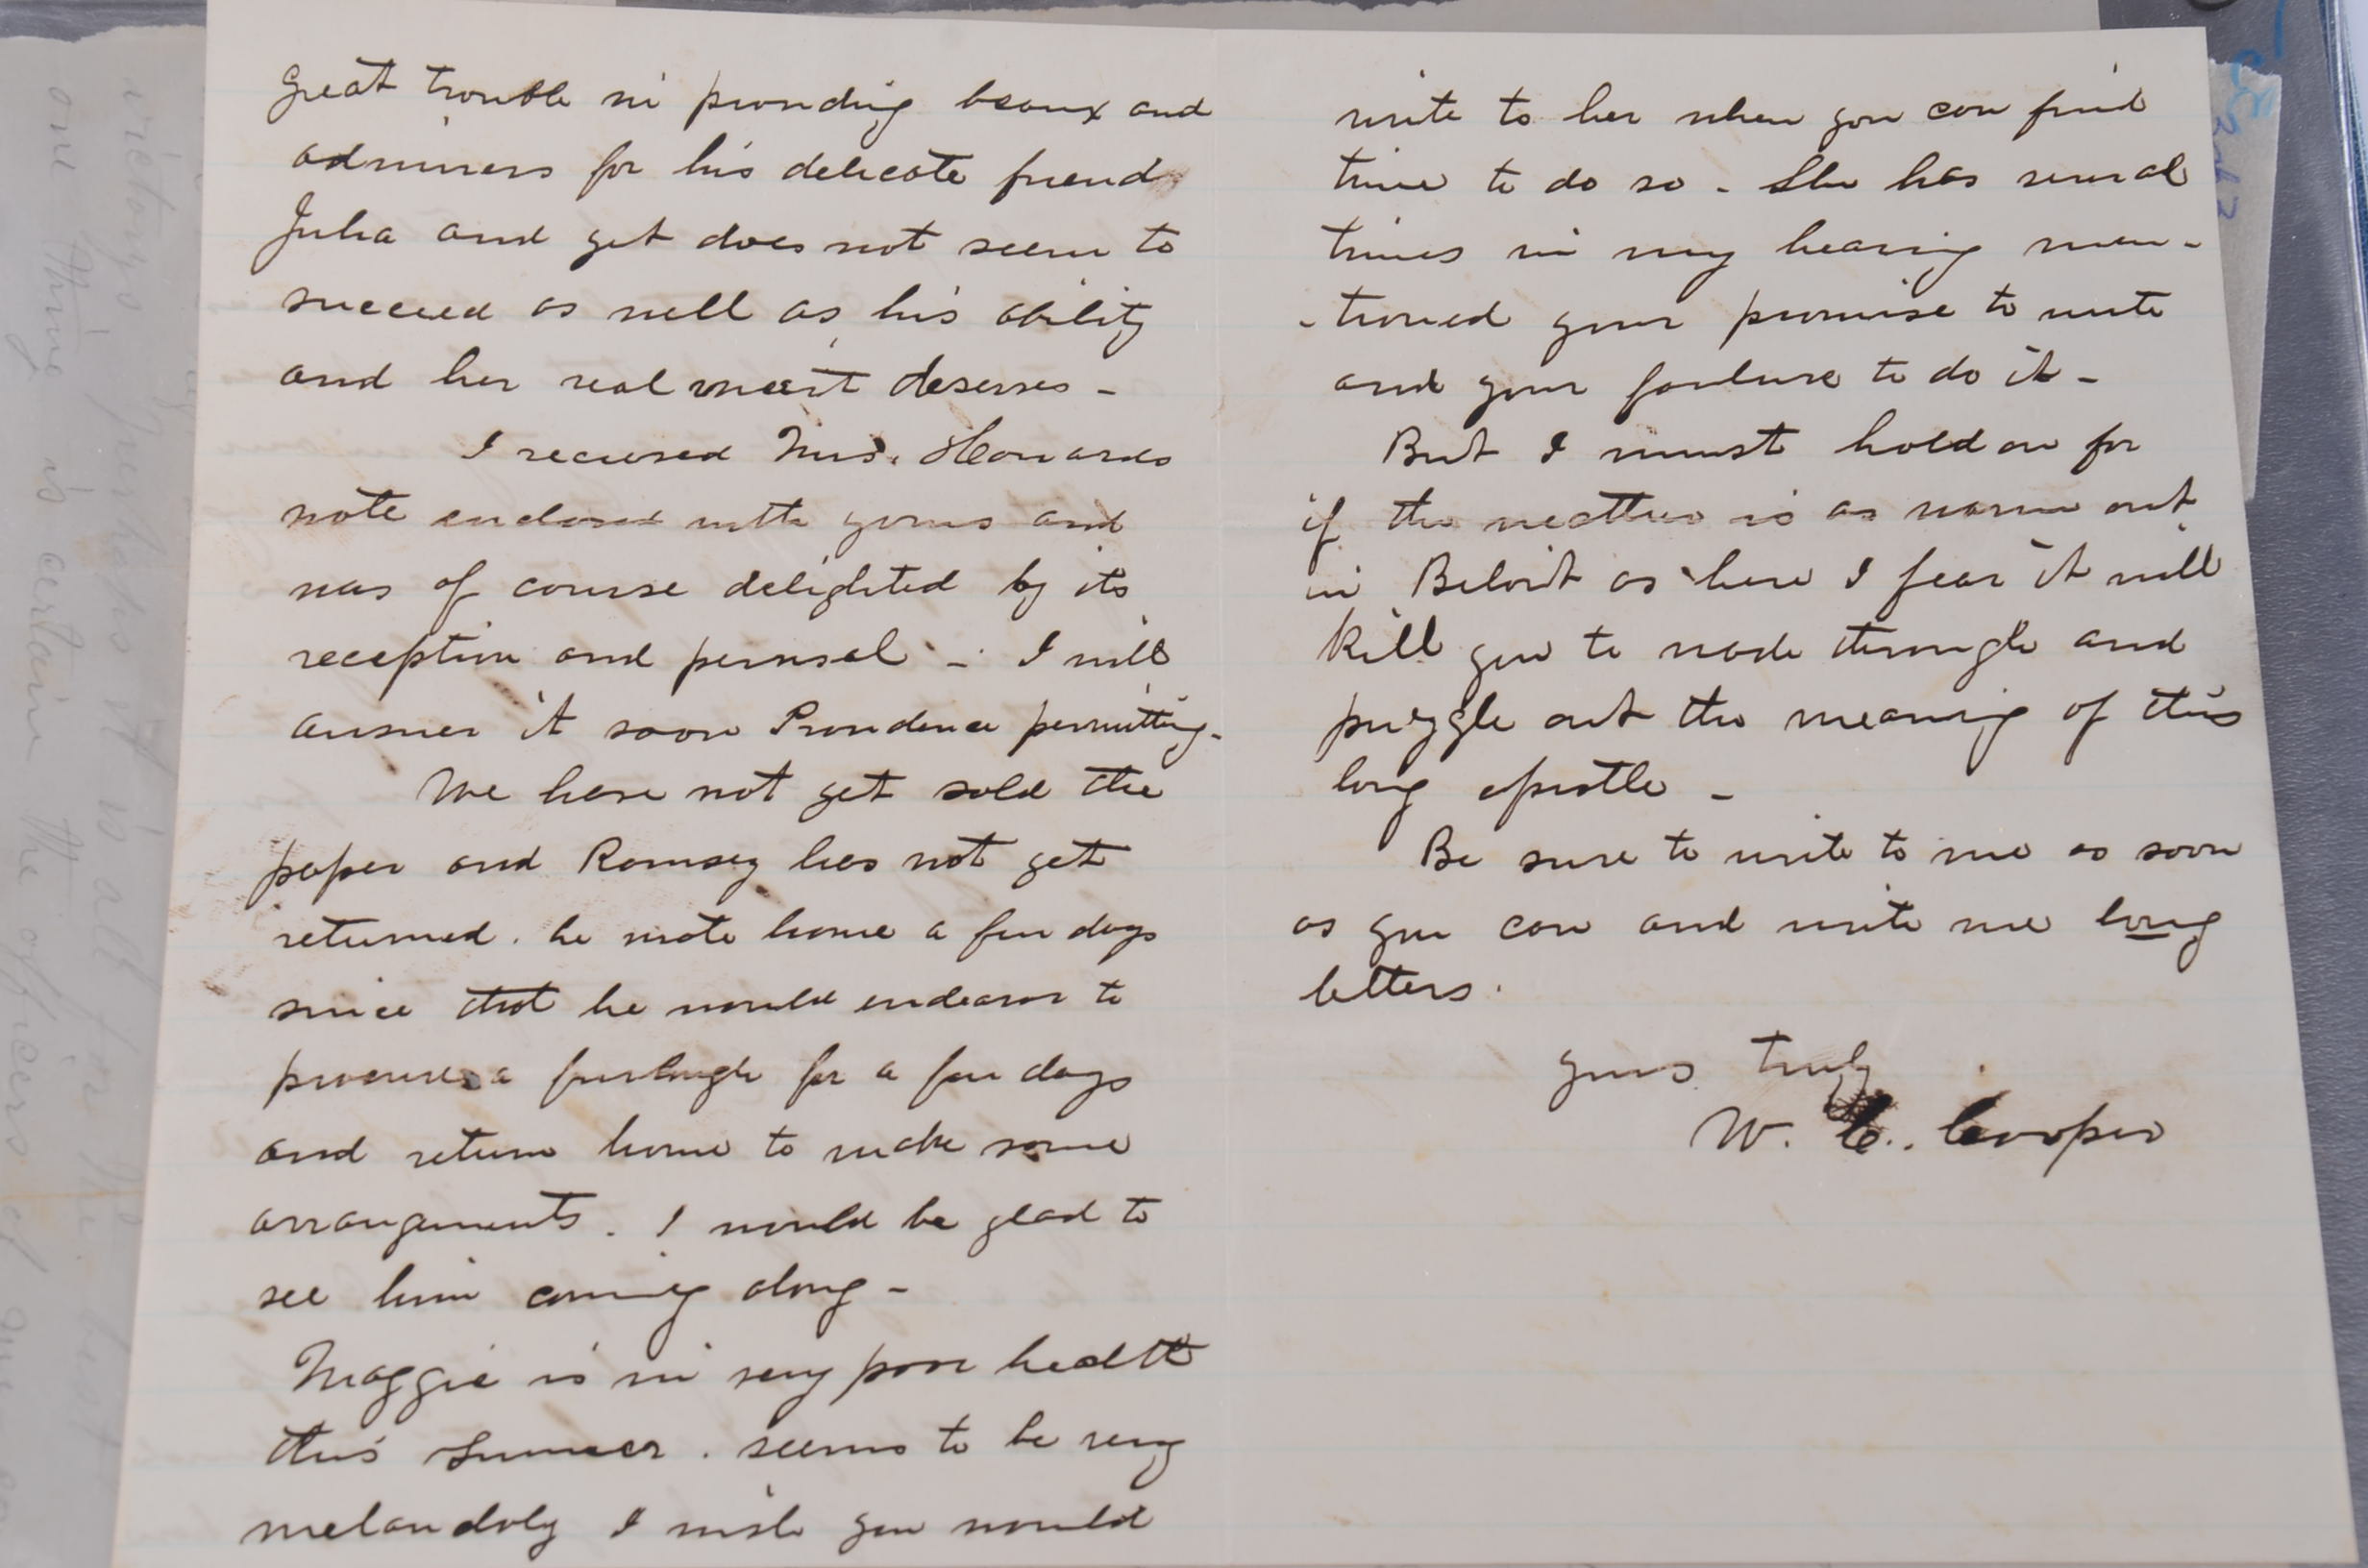 great trouble in providing beaux and
admirers for his delicate friend
Julia and yet does not seem to
succeed as well as his ability
and her real merit deserves -
I received Mrs. Howards
note enclosed with yours and
was of course delighted by its
reception and perusal - I will
answer it soon Providence permitting -
We have not yet sold the
paper and Ramsey has not yet
returned. he wrote home a few days
since that he would endeavor to
procure a furlough for a few days
and return home to make some
arrangements. I would be glad to
see him coming along -
Maggie is in very poor health
this summer. seems to be very
melancholy I wish you would
write to her when you can find
time to do so - She has several
times in my hearing men-
-tioned your promise to write
and your failure to do it -
But I must hold on for
if the weather is as warm out
in Beloit as here I fear it will
kill you to wade through and
puzzle out the meaning of this
long epistle -
Be sure to write to me as soon
as you can and write me long
letters.
yours truly
W. C. Cooper
one thing is certain the officers of